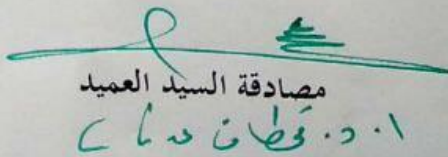 مصادقة السيد العميد
ا. د. قحطان عدنان